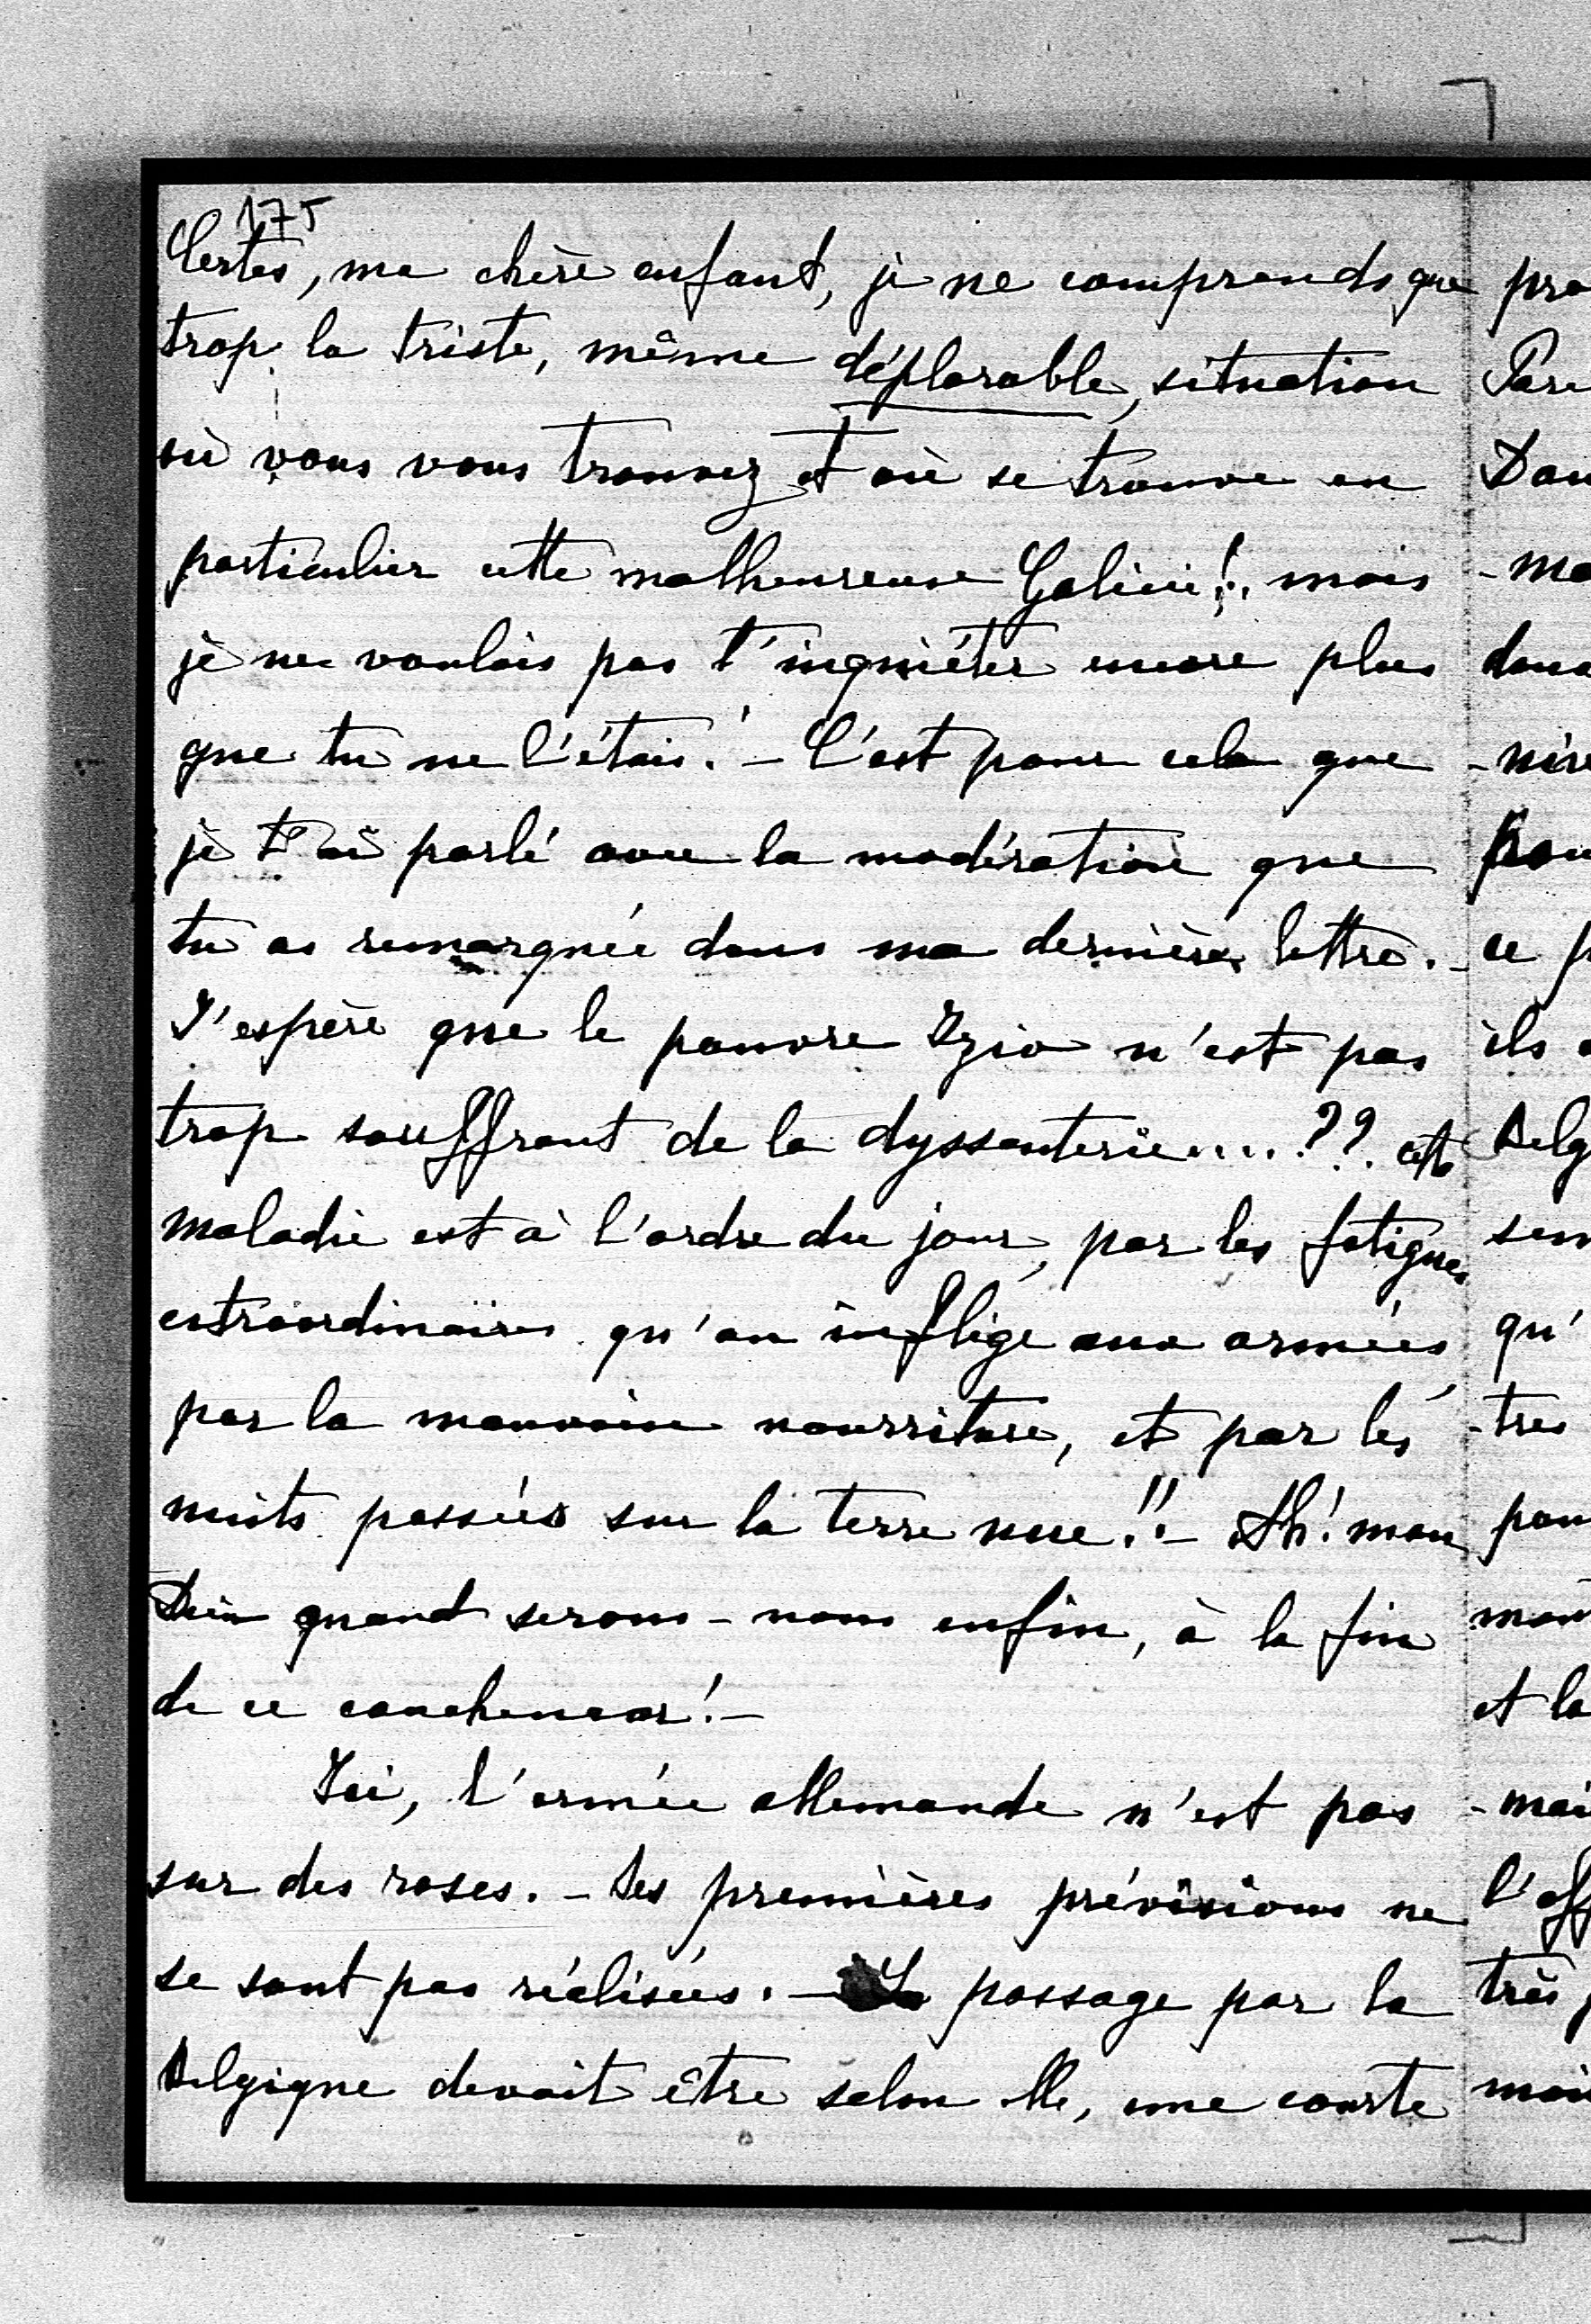 175
Certes, ma chère enfant, je ne comprends que
trop la triste, même déplorable, situation
où vous vous trouvez et où se trouve en
particulier cette malheureuse Galicie!.. mais
je ne voulais pas t'inquiéter encore plus
que tu ne l'étais! - C'est pour cela que
je t'ai parlé avec la modération que
tu as remarquée dans ma dernière lettre. -
J'espère que le pauvre Izio n'est pas
trop souffrant de la dyssenterie....?? cette
maladie est à l'ordre du jour, par les fatigues
extraordinaires qu'on inflige aux armées,
par la mauvaise nourriture, et par les
nuits passées sur la terre nue!! - Ah! mon
Dieu quand serons-nous enfin, à la fin
de ce cauchemar! -
Ici, l'armée allemande n'est pas
sur des roses. - Ses premières prévisions ne
se sont pas réalisées. - Le passage par la
Belgique devait être selon elle, une courte
pro
Pari
Dan
-ma
dans
-nire
pour
ce p
ils
Belg
sem
qu'
-tres
pou
mon
et la
-mai
l'off
très
moi